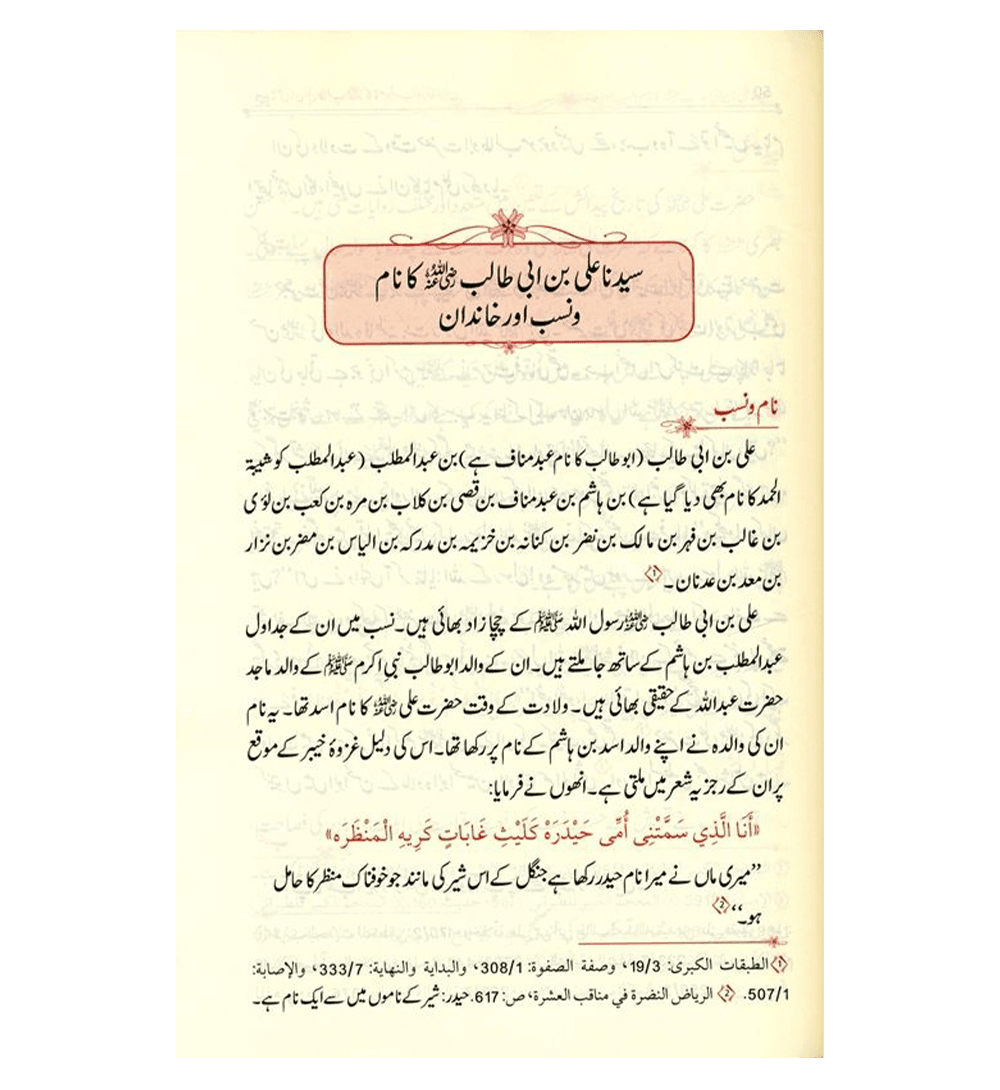 سیدنا علی بن ابی طالب رضی اللہ عنہ کا نام
ونسب اور خاندان
نام و نسب
علی بن ابی طالب (ابو طالب کا نام عبد مناف ہے) بن عبدالمطلب (عبدالمطلب کو شیبۃ
الحمد کا نام بھی دیا گیا ہے) بن ہاشم بن عبد مناف بن قصی بن کلاب بن مرہ بن کعب بن لؤی
بن غالب بن فہر بن مالک بن نضر بن کنانہ بن خزیمہ بن مدرکہ بن الیاس بن مضر بن نزار
بن معد بن عدنان۔ ①
علی بن ابی طالب رضی اللہ عنہ رسول اللہ ﷺ کے چچا زاد بھائی ہیں۔ نسب میں ان کے جد اول
عبدالمطلب بن ہاشم کے ساتھ جا ملتے ہیں۔ ان کے والد ابو طالب نبیِ اکرم ﷺ کے والد ماجد
حضرت عبداللہ کے حقیقی بھائی ہیں۔ ولادت کے وقت حضرت علی رضی اللہ عنہ کا نام اسد تھا۔ یہ نام
ان کی والدہ نے اپنے والد اسد بن ہاشم کے نام پر رکھا تھا۔ اس کی دلیل غزوۂ خیبر کے موقع
پر ان کے رجزیہ شعر میں ملتی ہے۔ انھوں نے فرمایا:
«أَنَا الَّذِي سَمَّتْنِی أُمِّی حَيْدَرَهْ كَلَيْثِ غَابَاتٍ كَرِيهِ الْمَنْظَرَه»
’’میری ماں نے میرا نام حیدر رکھا ہے جنگل کے اس شیر کی مانند جو خوفناک منظر کا حامل
ہو۔‘‘ ②
① الطبقات الكبرى: 19/3، وصفة الصفوة: 308/1، والبداية والنهاية: 333/7، والإصابة:
507/1. ② الرياض النضرة في مناقب العشرة، ص: 617. حیدر: شیر کے ناموں میں سے ایک نام ہے۔